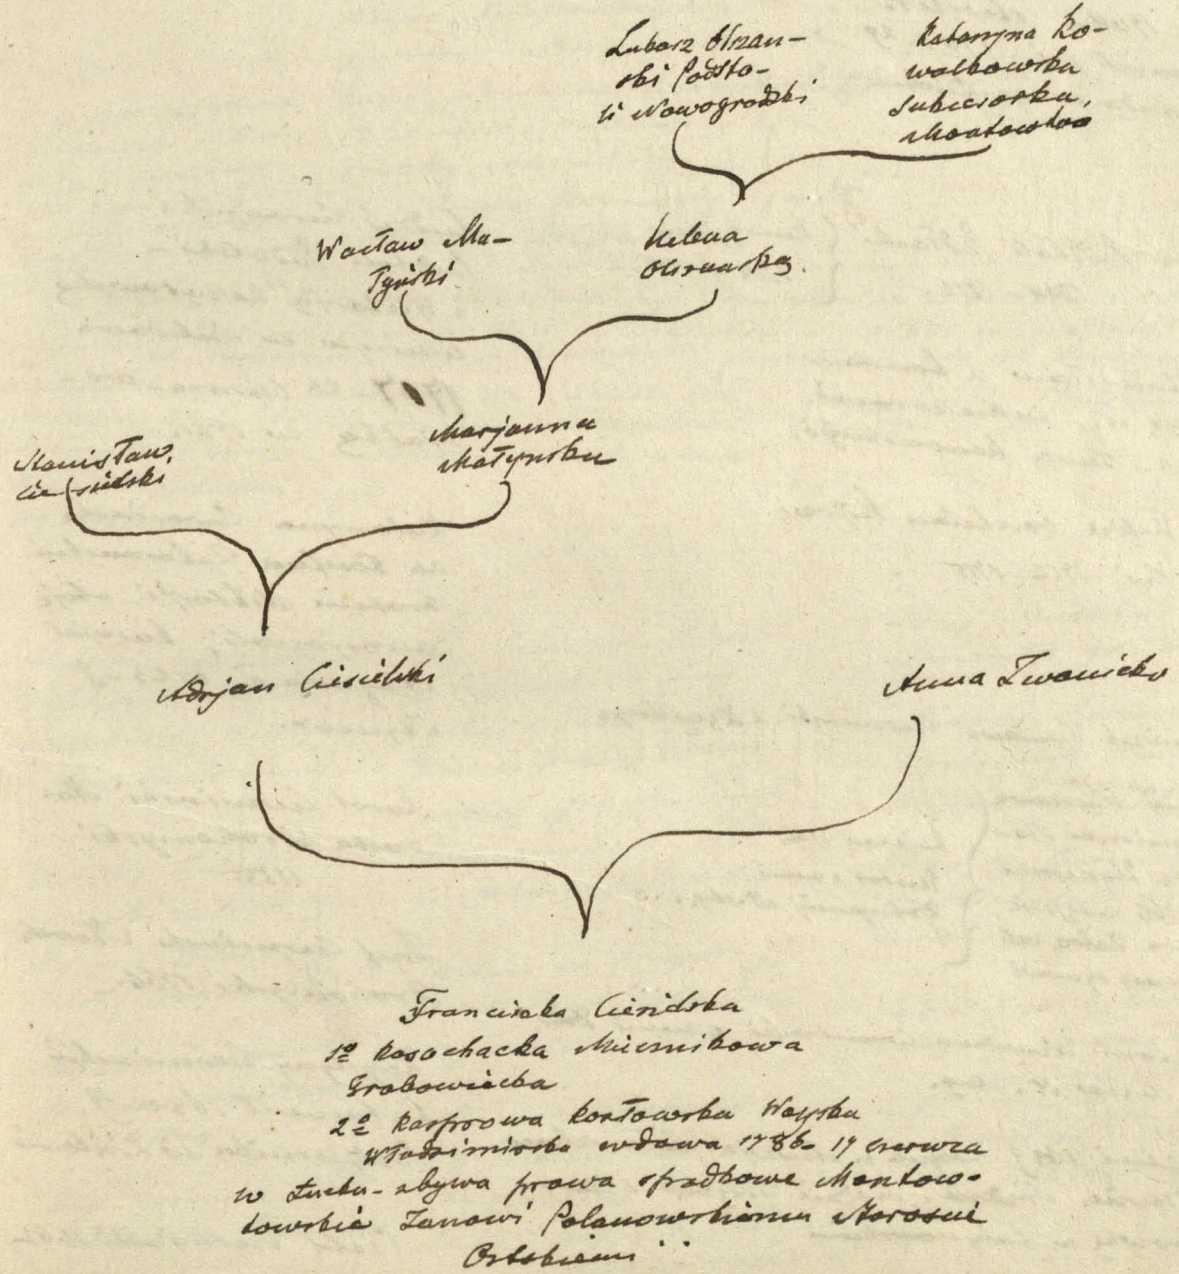 Lubarz Olszan-
ski Podsto-
li Nowogrodzki
Katarzyna Ko-
walkowska
Montowtow
Wacław Ma-
łyński.
Helena
Olszanska.
Stanisław
Ciesielski
Marjanna
Małynska
Adrjan Ciesielski
Anna Iwanicka
Franciszka Ciesielska
1º Rosochacka Miecznikowa
Grabowiecka
2º Kasprowa Kozłowska Woyska
Włodzimirska wdowa 1786 17 czerwca
w Łucku - zbywa prawa spadkowe Montow-
towskie Janowi Polanowskiemu Staroscie